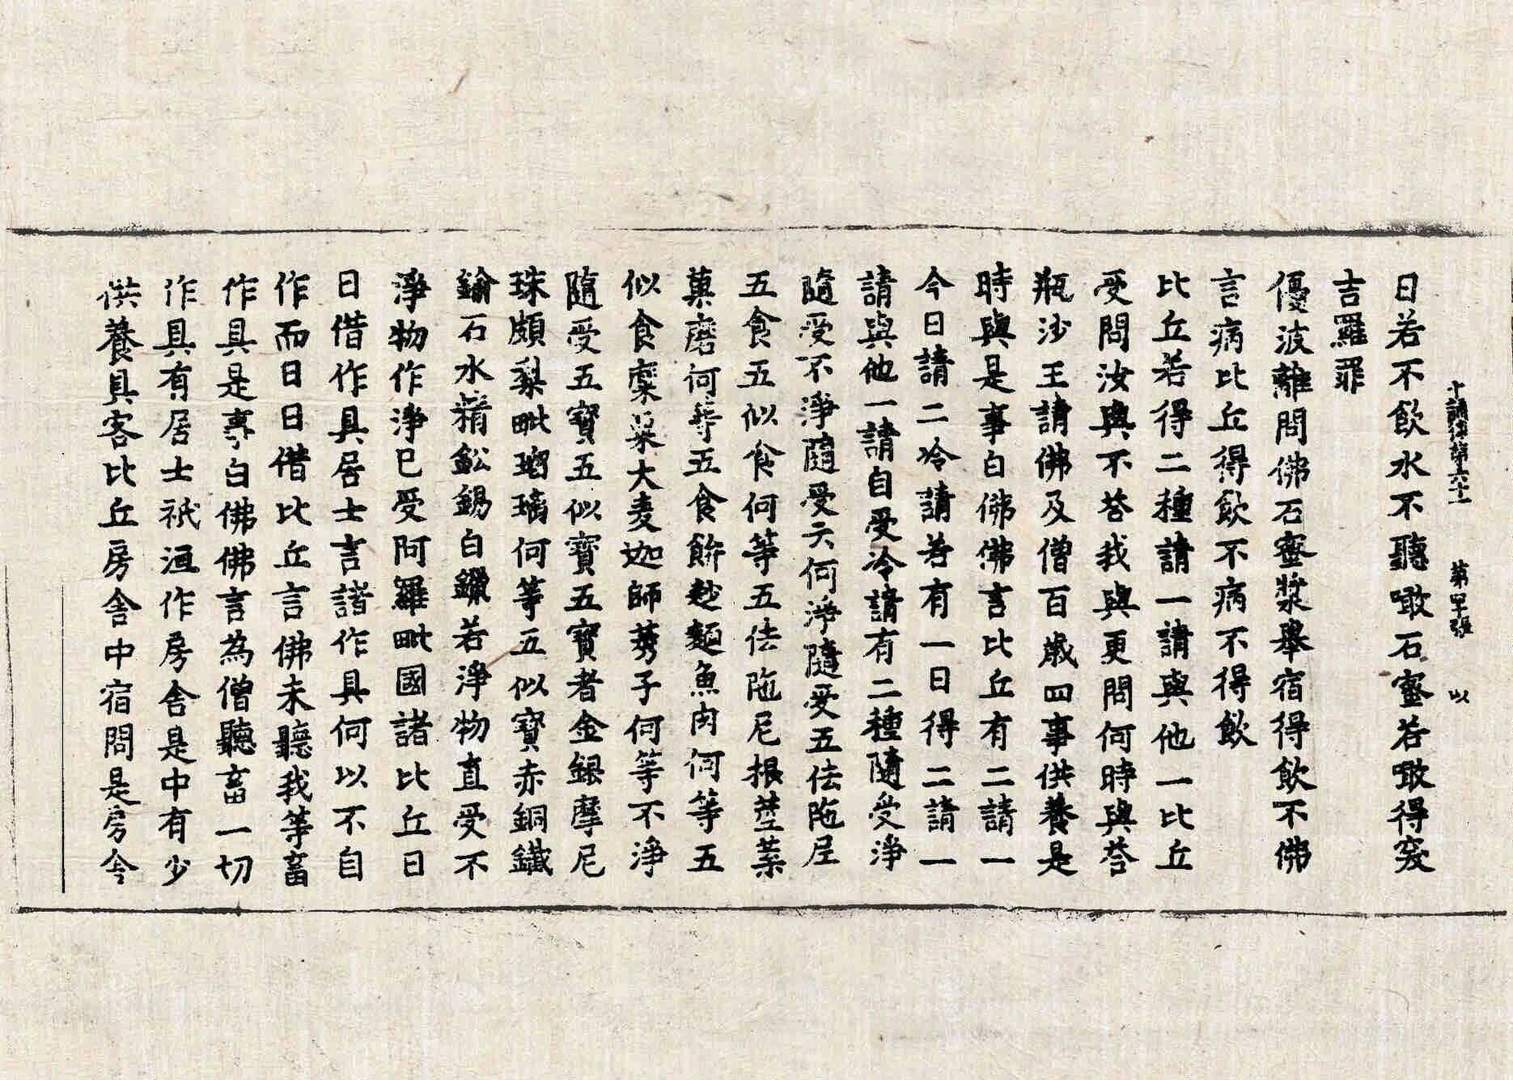 十誦律第六十一 第四十張 以
日若不飲水不聽噉石蜜若噉得突
吉羅罪
優波離問佛石蜜漿舉宿得飲不佛
言病比丘得飲不病不得飲
比丘若得二種請一請與他一比丘
受問汝與不荅我與更問何時與荅
瓶沙王請佛及僧百歲四事供養是
時與是事白佛佛言比丘有二請一
今日請二冷請若有一日得二請一
請與他一請自受冷請有二種隨受淨
隨受不淨隨受云何淨隨受五佉陁尼
五食五似食何等五佉陁尼根莖葉
菓磨何等五食餅麨麵魚肉何等五
似食糜粟大麦迦師莠子何等不淨
隨受五寶五似寶五寶者金銀摩尼
珠頗梨毗瑠璃何等五似寶赤銅鐵
鍮石水精鈆錫白鑞若淨物直受不
淨物作淨已受阿羅毗國諸比丘日
日借作具居士言諸作具何以不自
作而日日借比丘言佛未聽我等畜
作具是事白佛佛言為僧聽畜一切
作具有居士祇洹作房舍是中有少
供養具客比丘房舍中宿問是房舍